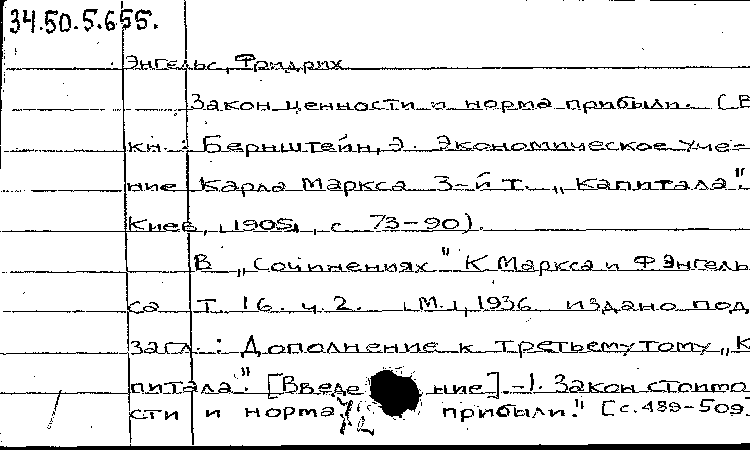 34.50.5.655.
Энгельс, Фридрих
Закон ценности и норма прибыли. (В
кн.: Бернштейн, Э. Экономическое уче-
ние Карла Маркса 3-й т. „Капитала".
Киев, [1905], с. 73-90).
В „Сочинениях" К Маркса и Ф. Энгель
са Т. 16. ч. 2. [М.], 1936 издано под
загл.: Дополнение к третьему тому „К
питала". [Введе ние]. -1. Закон стоимо
сти и норма прибыли." [с. 489-509.